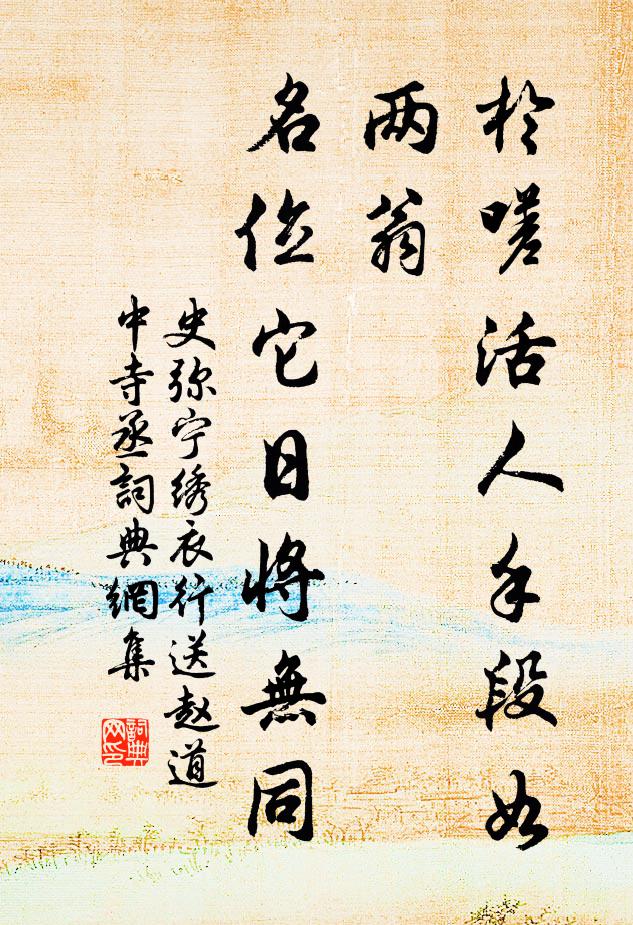 於嗟活人手段如
两翁
名位它日将無同
史弥宁绣衣行送赵道
中寺丞詞典網集
詞典
网印